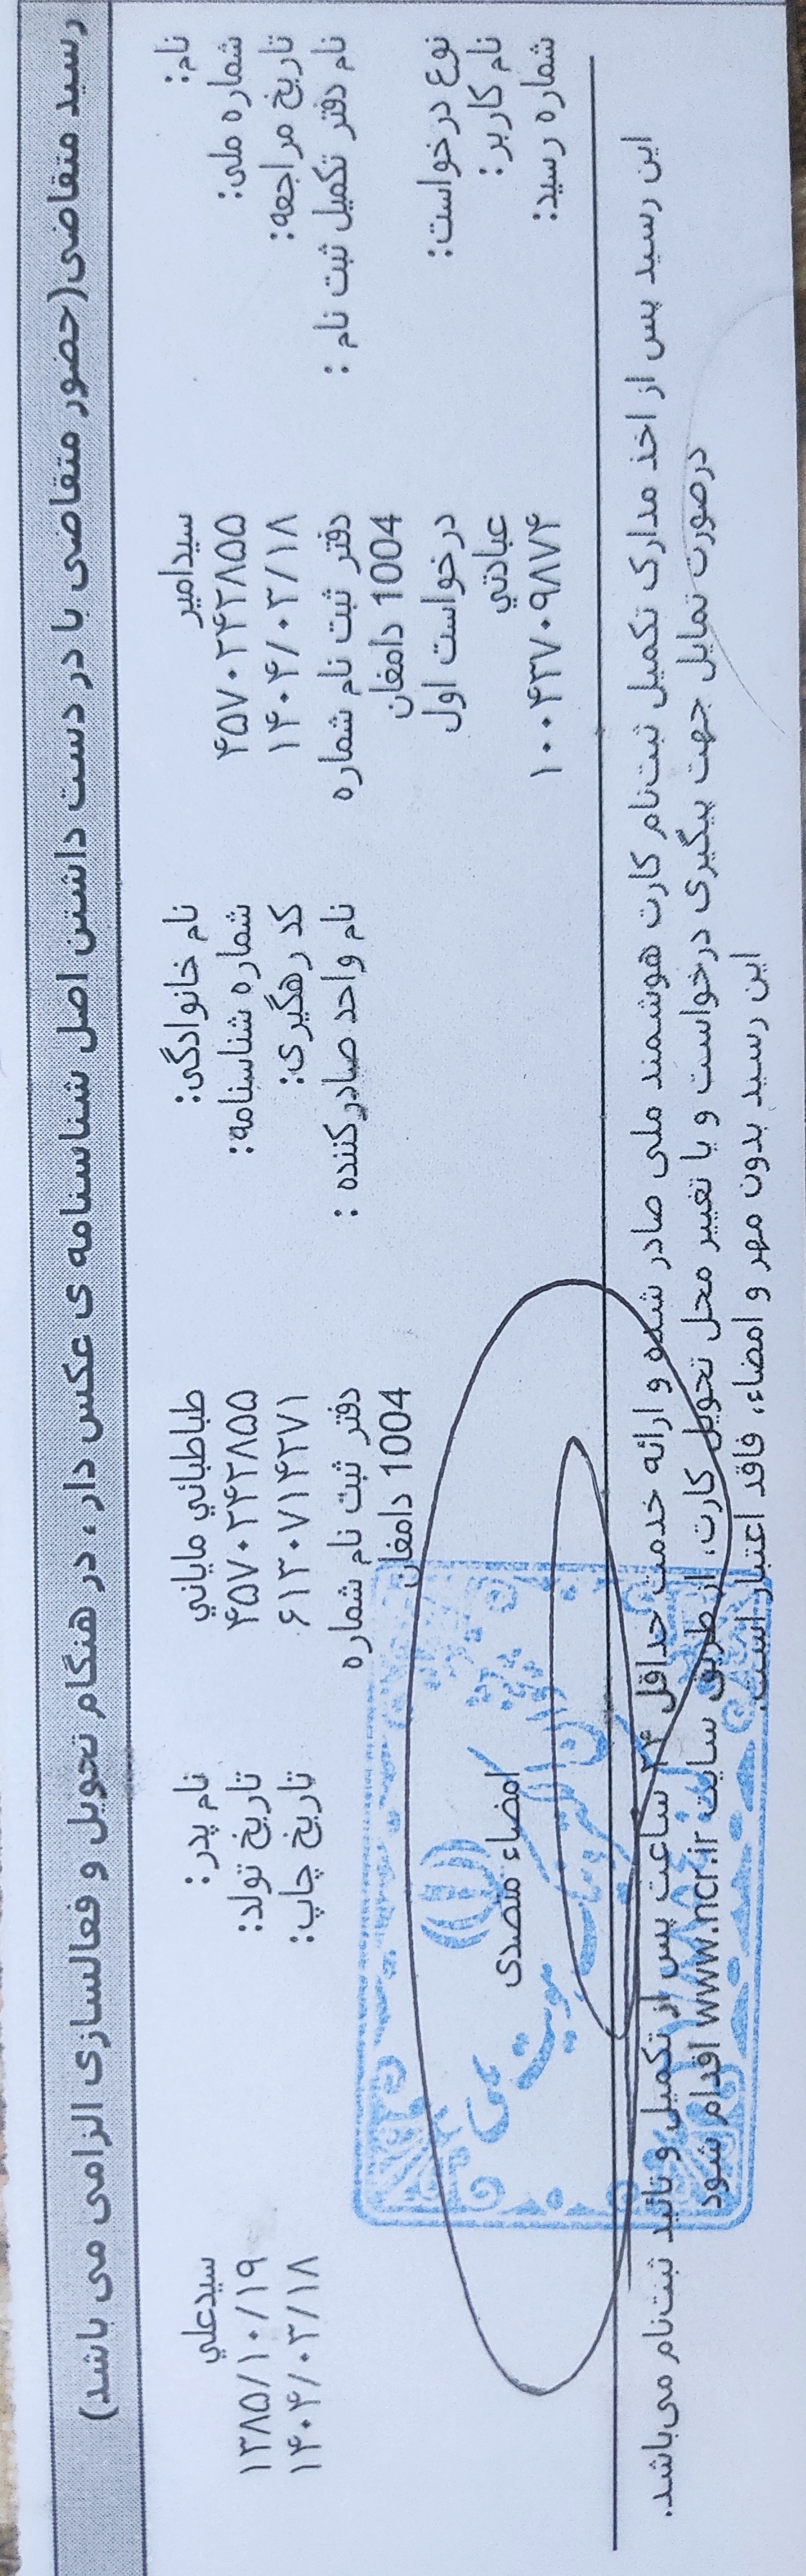 رسید متقاضی(حضور متقاضی با در دست داشتن اصل شناسنامه ی عکس دار، در هنگام تحویل و فعالسازی الزامی می باشد)
نام: سیدامیر نام خانوادگی: طباطبائي ماياني نام پدر: سیدعلي
شماره ملی: ۴۵۷۰۲۴۲۸۵۵ شماره شناسنامه: ۴۵۷۰۲۴۲۸۵۵ تاریخ تولد: ۱۳۸۵/۱۰/۱۹
تاریخ مراجعه: ۱۴۰۴/۰۳/۱۸ کد رهگیری: ۶۱۳۰۷۱۴۲۷۱ تاریخ چاپ: ۱۴۰۴/۰۳/۱۸
نام دفتر تکمیل ثبت نام : دفتر ثبت نام شماره نام واحد صادرکننده : دفتر ثبت نام شماره
1004 دامغان 1004 دامغان
نوع درخواست: درخواست اول
نام کاربر: عبادتي امضاء متصدی
شماره رسید: ۱۰۰۴۳۷۰۹۸۷۴
این رسید پس از اخذ مدارک تکمیل ثبت‌نام کارت هوشمند ملی صادر شده و ارائه خدمت حداقل ۲۴ ساعت پس از تکمیل و تائید ثبت‌نام می‌باشد.
درصورت تمایل جهت پیگیری درخواست و یا تغییر محل تحویل کارت، از طریق سایت www.ncr.ir اقدام شود
این رسید بدون مهر و امضاء، فاقد اعتبار است.